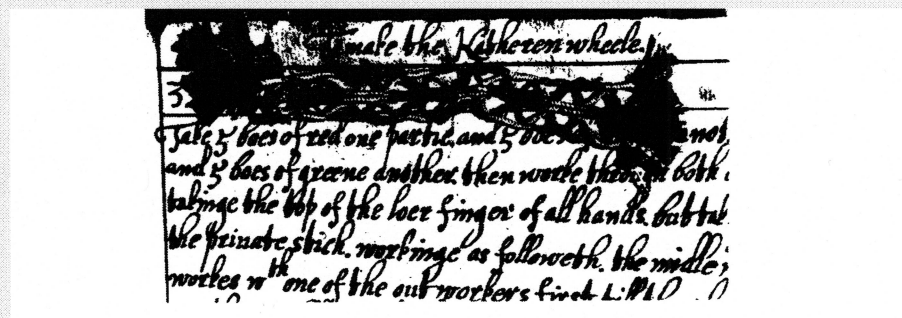 make the Katheren wheele.
Take 5 boes of red one partie, and 5 boes
and 5 boes of greene another then worke throwgh both
takinge the top of the loer finger of all hands. but tak
the private stich. workinge as followeth. the midle
workes wth one of the out workers first till